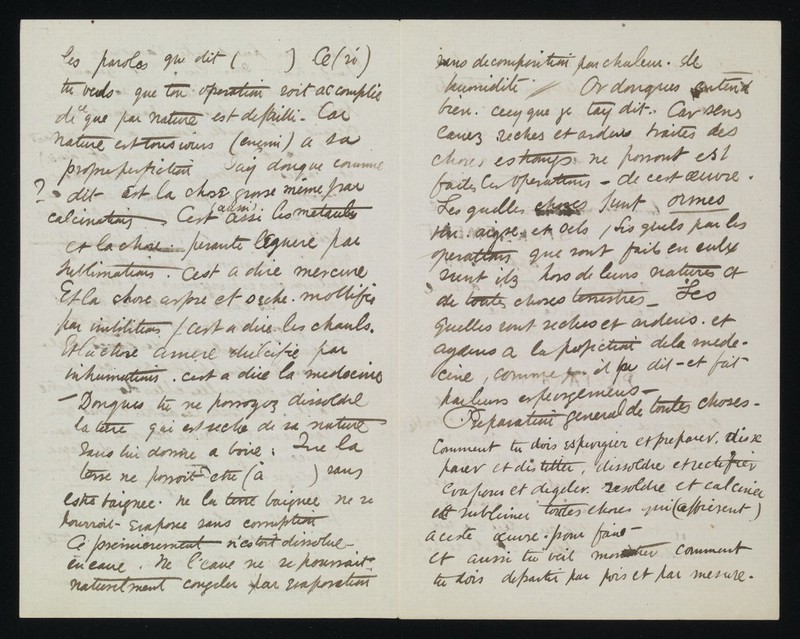 les paroles que dit ( ) Ce (si)
tu veds que ton operation soit accomplie
de que par nature est deffailli. Car
nature est tousiours (enclini) a sa
propre perfiction Jay donque comme
? dit est la chose grosse mēme par
calcinations. Cest (aussi) assi les metaulx
et la chose pesante legiere par
sublimations. Cest a dire mercure
Et la chose aspre et seche mollifie
par imbibitions / cest a dire les chauls.
Et la chose amere dulcifie par
inhumations. cest a dire la medecine
— Donques tu ne porroyez dissoldre
la terre qui est seche de sa nature
sans lui donne a boire: Que la
terre ne porroit etre (a ) sans
estre baignee. ne la terre baignee ne se
pourroit evaporer sans corruption
Ce premierement n'estoit dissolue
en eaue. Ne l'eaue ne se pourroit
naturelment congeler par evaporation
sans decomposition par chaleur de
humidite // Or donques entend
bien. cecy que je tay dit. Car sens
eauez seches et ardens traites des
choses estranges ne porront est
faites les operations - de cest œuvre.
Les quelles choses sunt ormes
vin. aigre et sels, les quels par les
operations que sont fais en eulx
sunt ilz hors de leurs natures et
de toutes choses terrestres — Les
quelles sont seches et ardens. et
aydens a la perfiction de la mede-
cine, comme il dit - et fait
par leurs expurgemens —
Preparation general de toutes choses -
Comment tu dois espurgier et preparer, disse
parer et distiller, dissoldre et rectifier
evaporer et degeler. resoldre et calciner
et sublimer toutes choses qui (affierent)
a ceste œuvre pour faire
et aussi tu veil monstrer comment
tu dois departir par pois et par mesure.